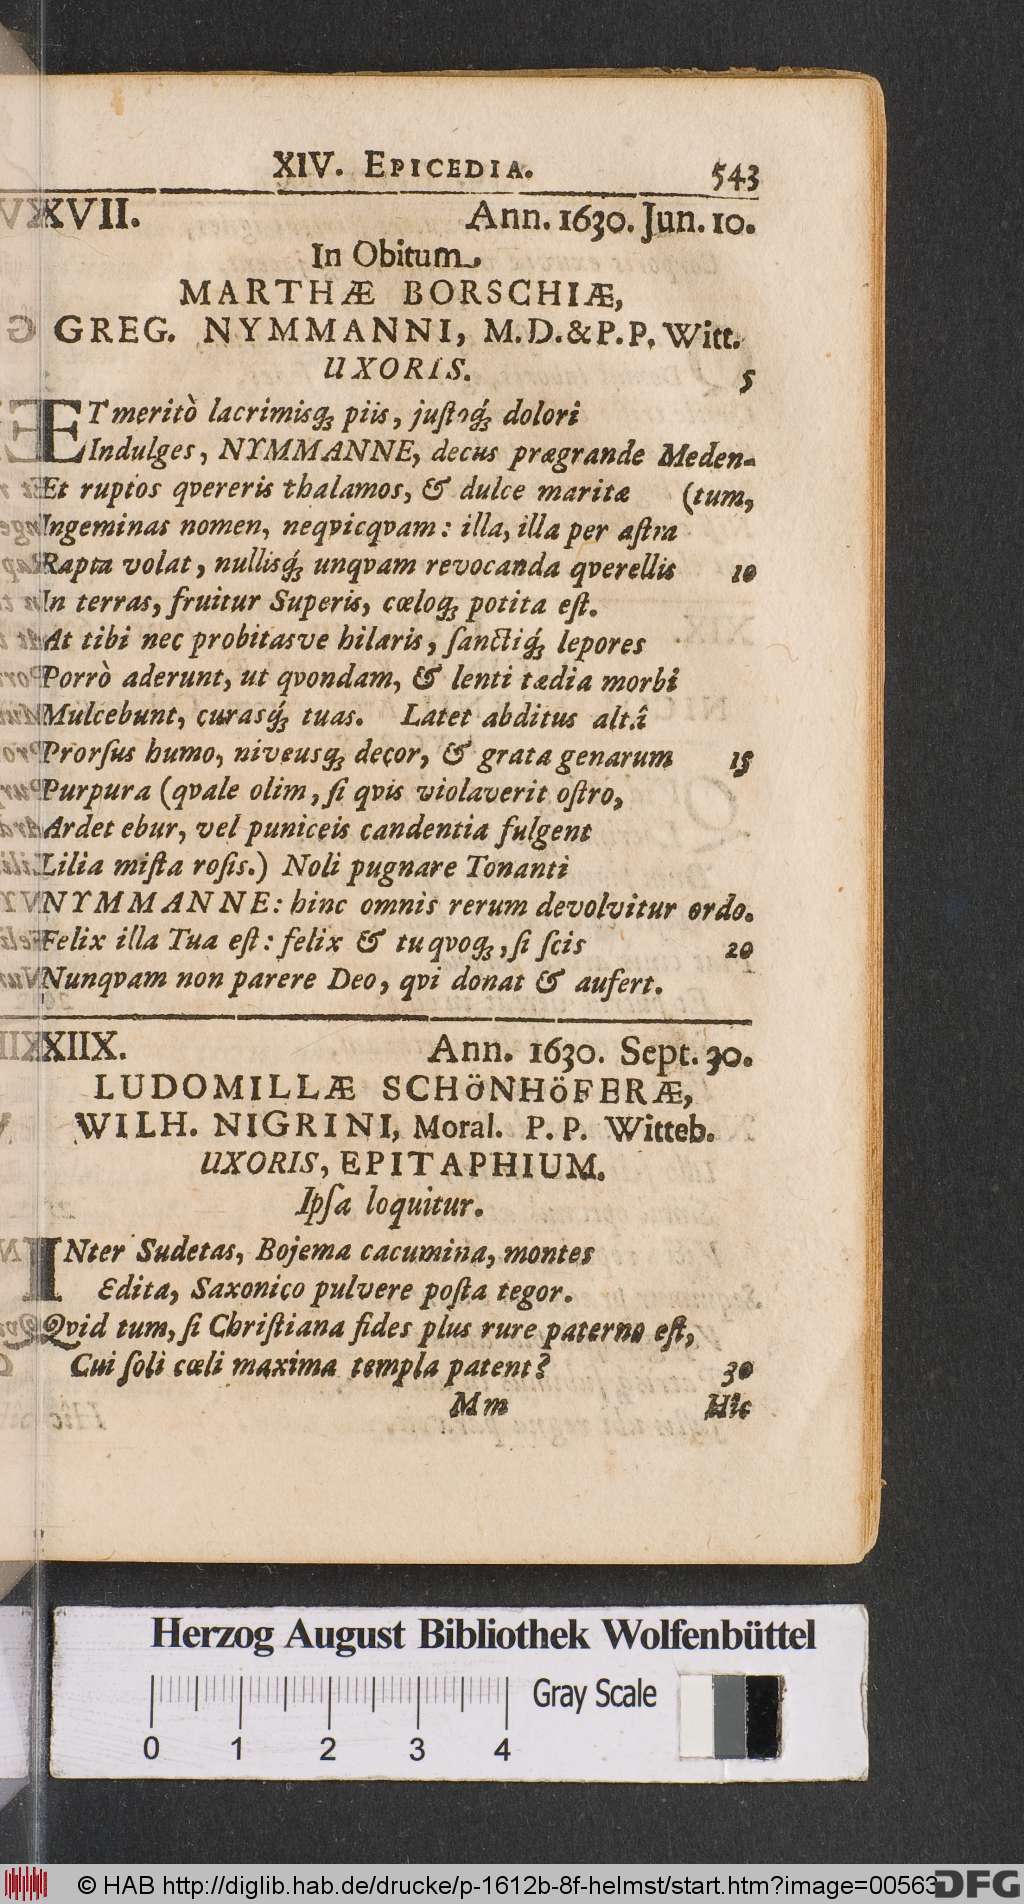 XIV. EPICEDIA. 543
XVII. Ann. 1630. Jun. 10.
In Obitum
MARTHÆ BORSCHIÆ,
GREG. NYMMANNI, M.D.&P.P. Witt.
UXORIS. 5
ET meritò lacrimisq́ꝫ piis, juſtoq́ꝫ dolori
Indulges, NYMMANNE, decus prægrande Meden-
Et ruptos qvereris thalamos, & dulce maritæ (tum,
Ingeminas nomen, neqvicqvam: illa, illa per aſtra
Rapta volat, nullisq́ꝫ unqvam revocanda qverellis 10
In terras, fruitur Superis, cœloqꝫ potita eſt.
At tibi nec probitasve hilaris, ſanctiq́ꝫ lepores
Porrò aderunt, ut qvondam, & lenti tædia morbi
Mulcebunt, curasq́ꝫ tuas. Latet abditus altâ
Prorſus humo, niveusqꝫ decor, & grata genarum 15
Purpura (qvale olim, ſi qvis violaverit oſtro,
Ardet ebur, vel puniceis candentia fulgent
Lilia miſta roſis.) Noli pugnare Tonanti
NYMMANNE: hinc omnis rerum devolvitur ordo.
Felix illa Tua eſt: felix & tu qvoqꝫ, ſi ſcis 20
Nunqvam non parere Deo, qvi donat & aufert.
XIIX. Ann. 1630. Sept. 30.
LUDOMILLÆ SCHöNHöFERÆ,
WILH. NIGRINI, Moral. P. P. Witteb.
UXORIS, EPITAPHIUM.
Ipſa loquitur.
INter Sudetas, Bojema cacumina, montes
Edita, Saxonico pulvere poſta tegor.
Qvid tum, ſi Chriſtiana fides plus rure paterno eſt,
Cui ſoli cœli maxima templa patent? 30
Mm Hic
Herzog August Bibliothek Wolfenbüttel
Gray Scale
0 1 2 3 4
© HAB http://diglib.hab.de/drucke/p-1612b-8f-helmst/start.htm?image=00563
DFG